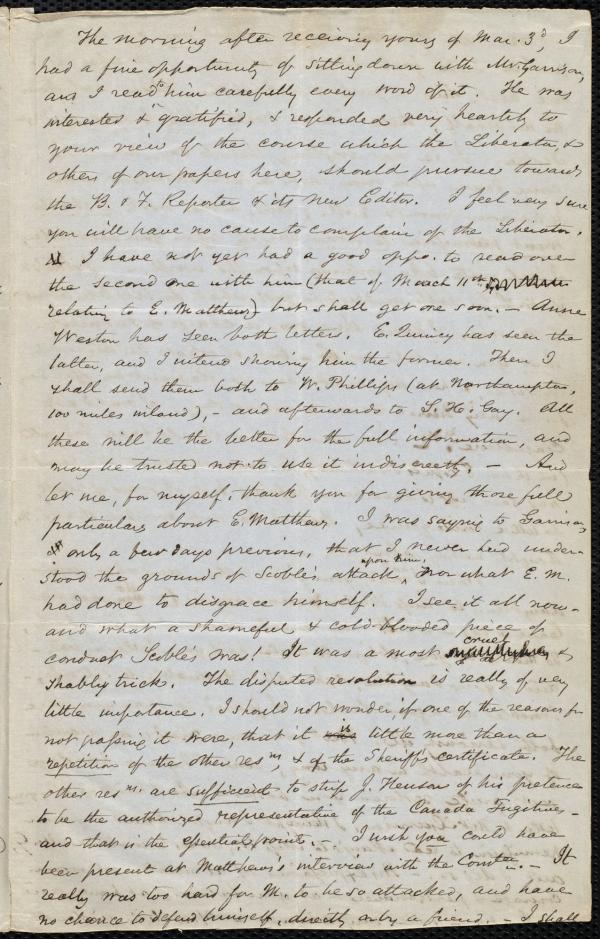 The morning after receiving yours of Mar. 3d, I
had a fine opportunity of sitting down with Mr. Garrison,
and I read to him carefully every word of it. He was
interested & gratified, & responded very heartily to
your view of the course which the Liberator, &
others of our papers here, should pursue towards
the B. & F. Reporter & its new Editor. I feel very sure
you will have no cause to complain of the Liberator.
I have not yet had a good oppo. to read over
the second one with him (that of March 11th,
relating to E. Matthews) but shall get one soon. – Anne
Weston has seen both letters. E. Quincy has seen the
latter, and I intend showing him the former. Then I
shall send them both to W. Phillips (at Northampton,
100 miles inland), – and afterwards to S. H. Gay. All
these will be the better for the full information, and
may be trusted not to use it indiscreetly. – And
let me, for myself, thank you for giving those full
particulars about E. Matthews. I was saying to Garrison,
only a few days previous, that I never had under-
stood the grounds of Scoble's attack upon him, nor what E. M.
had done to disgrace himself. I see it all now –
and what a shameful & cold-blooded piece of
conduct Scoble's was! It was a most cruel &
shabby trick. The disputed resolution is really of very
little importance. I should not wonder, if one of the reasons for
not passing it were, that it is little more than a
repetition of the other resns, & of the Sheriff's certificate. The
other resns. are sufficient to strip J. Henson of his pretence
to be the authorized representative of the Canada Fugitives –
and that is the essential point. – I wish you could have
been present at Matthews's interview with the Comtee. – It
really was too hard for M. to be so attacked, and have
no chance to defend himself, directly or by a friend. – I shall